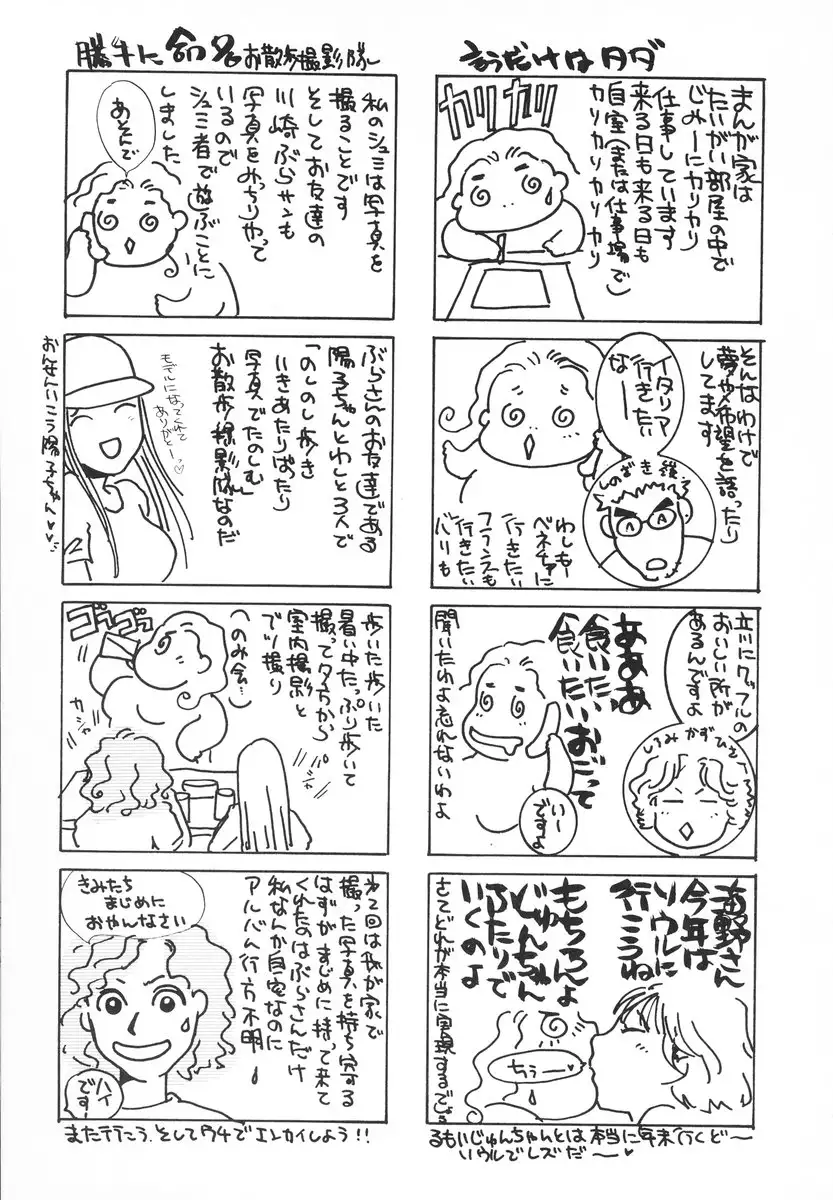 言うだけはタダ
まんが家は
たいがい部屋の中で
じみーにカリカリ
仕事しています
来る日も来る日も
自室(または仕事場で)
カリカリカリカリ
カリカリ
そんなわけで
夢や希望を語ったり
してます
イタリア
行きたい
なーー
しのざき嶺
わしもー
ベネチアに
行きたい
フランスも
行きたい
パリも
立川にワッフルの
おいしい所が
あるんですよ
しろみかずひさ
あああ
食いたい
食いたいおごって
聞いたわよ忘れないわよ
いー
ですよ
海野さん
今年は
ソウルに
行こうね
もちろんよ
じゅんちゃん
ふたりで
いくのよ
さてどれが本当に実現するでしょう
ちぅー
るもいじゅんちゃんとは本当に年末行くど〜
ソウルでレズだ〜♥
勝手に命名お散歩撮影隊
私のシュミは写真を
撮ることです
そしてお友達の
川崎ぶらサンも
写真をみっちりやって
いるので
シュミ者で遊ぶことに
しました
あそんで
ぶらさんのお友達である
陽子ちゃんとわしと3人で
「のしのし歩き
いきあたりばったり
写真でたのしむ
お散歩撮影隊」なのだ
モデルになってくれて
ありがとーっ♡
おんせんいこう陽子ちゃん♥♥
歩いた歩いた
暑い中たっぷり歩いて
撮って夕方から
室内撮影と
でい撮り
(のみ会…)
ゴッゴッ
カシャ
次回は我が家で
撮った写真を持ち寄する
はずがまじめに持って来て
くれたのはぶらさんだけ
私なんか自宅なのに
アルバム行方不明
きみたち
まじめに
おやんなさい
ハイ
です
また行こう、そしてウチでエンカイしよう!!